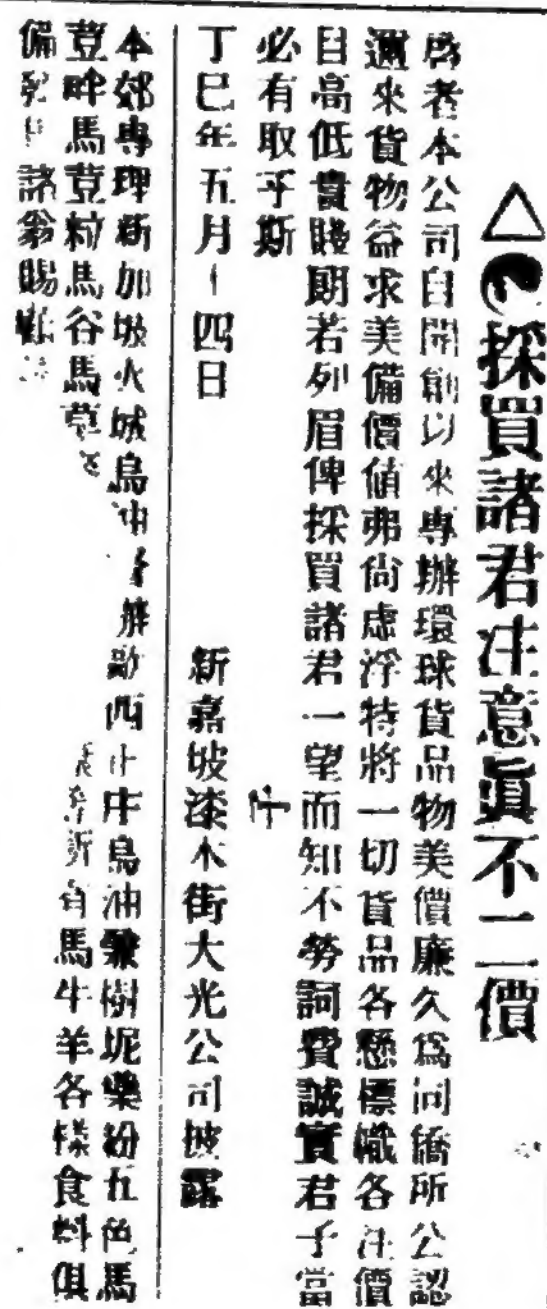 △採買諸君注意眞不二價
啓者本公司自開創以來專辦環球貨品物美價廉久爲同僑所公認
邇來貨物益求美備價值弗尙虛浮特將一切貨品各懸標幟各注價
目高低貴賤朗若列眉俾採買諸君一望而知不勞詞費誠實君子當
必有取乎斯
丁巳年五月十四日
新嘉坡漆木街大光公司披露
本郊專理新加坡火城烏油 西 烏油 樹坭藥紛五色馬
荳 馬荳粒馬谷馬草 新有馬牛羊各樣食料俱
備 諸翁賜顧